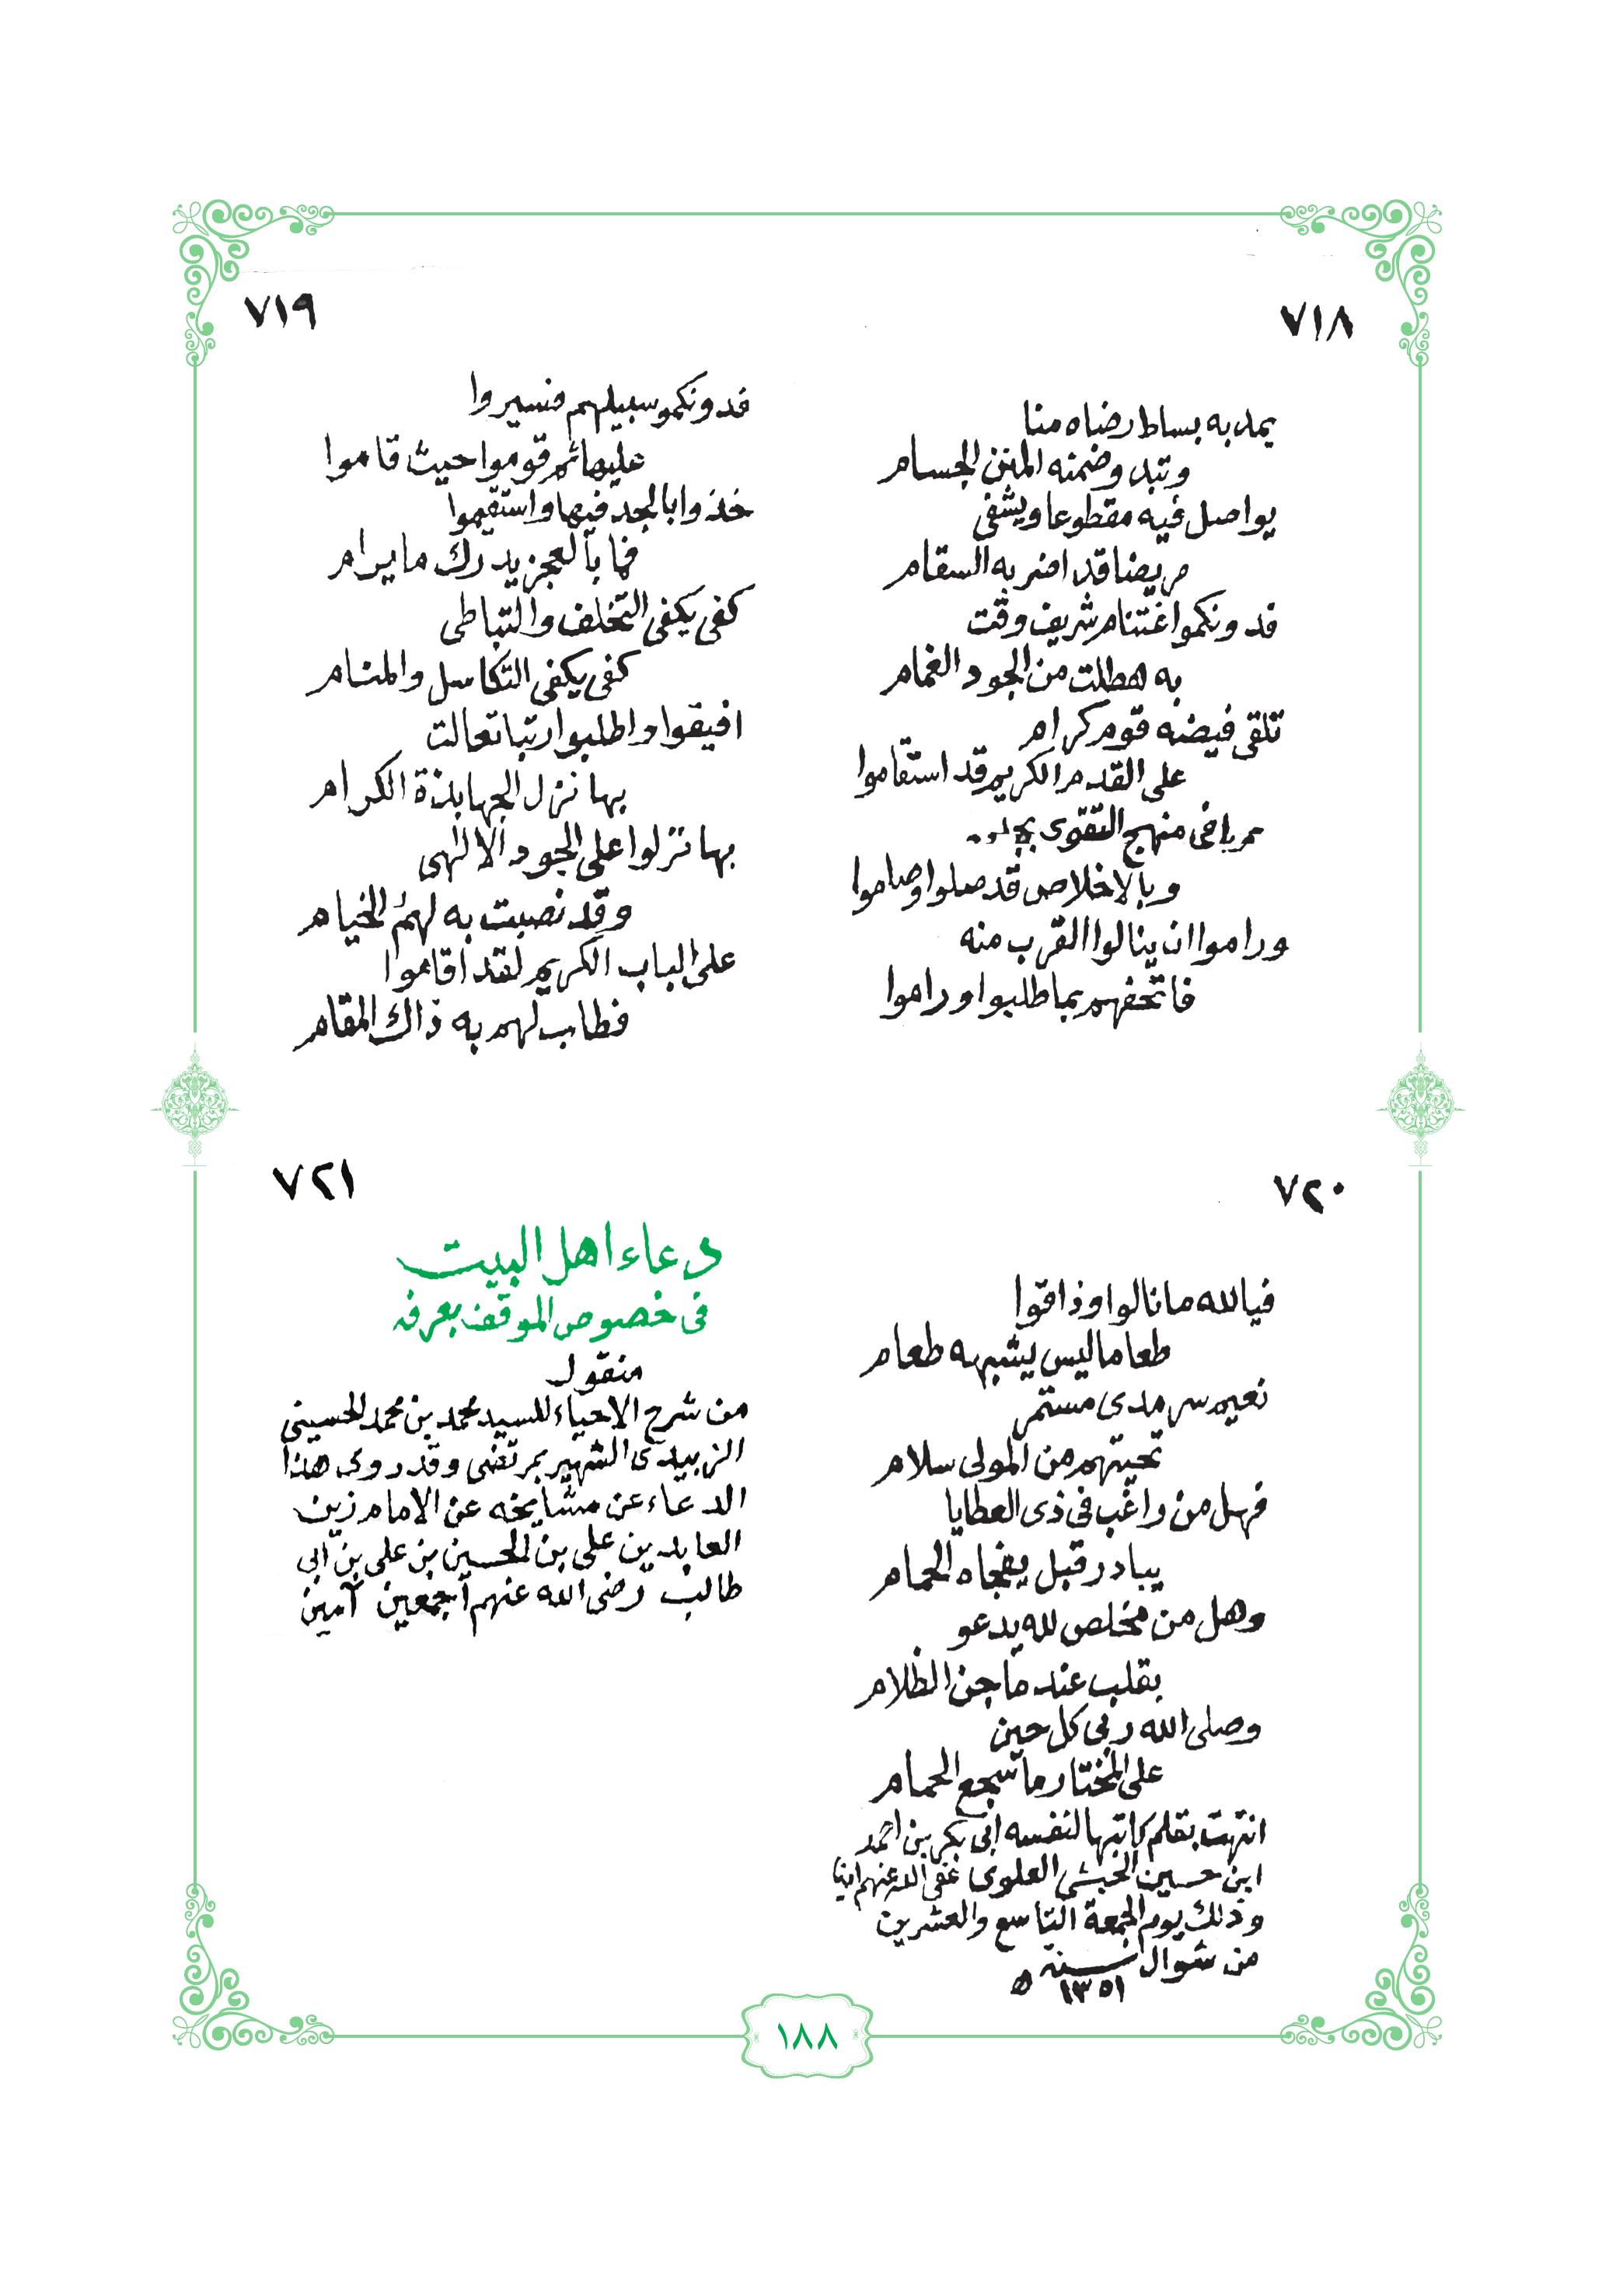 ٧١٨
يمد به بساط رضاه منا
وتبدو ضمنه المنن الجسام
يواصل فيه مقطوعا ويشفى
مريضا قد اضر به السقام
فدونكموا غتنام شريف وقت
به هطلت من الجود الغمام
تلقى فيضه قوم كرام
على القدم الكريم قد استقاموا
سروا فى منهج التقوى
وبالاخلاص قد صلوا وصاموا
وراموا ان ينالوا القرب منه
فاتحفهم بما طلبوا وراموا
٧١٩
فدونكمو سبيلهم فسيروا
عليها ثم قوموا حيث قاموا
خذوا بالجد فيها واستقيموا
فما بالعجز يدرك ما يرام
كفى يكفى التخلف والتباطى
كفى يكفى التكاسل والمنام
افيقوا واطلبوا رتبا تعالت
بها نزل الجهابذة الكرام
بها نزلوا على الجود الالهى
وقد نصبت به لهم الخيام
على الباب الكريم لقد اقاموا
فطاب لهم به ذاك المقام
٧٢٠
فيالله ما نالوا وذاقوا
طعاما ليس يشبهه طعام
نعيم سرمدى مستمر
تحيتهم من المولى سلام
فهل من راغب فى ذى العطايا
يبادر قبل يفجاه الحمام
وهل من مخلص لله يدعو
بقلب عند ما جن الظلام
وصلى الله ربى كل حين
على المختار ما سجع الحمام
انتهت بقلم كاتبها لنفسه ابى بكر بن احمد
ابن حسين الحبشى العلوى عفى الله عنهم
وذلك يوم الجمعة التاسع والعشرين
من شوال سنة
١٣٥١ ه
٧٢١
دعاء اهل البيت
فى خصوص الموقف بعرفه
منقول
من شرح الاحياء للسيد محمد بن محمد الحسينى
الزبيدى الشهير بمرتضى وقد روى هذا
الدعاء عن مشايخه عن الامام زين
العابدين على بن الحسين بن على بن ابى
طالب رضى الله عنهم اجمعين آمين
١٨٨